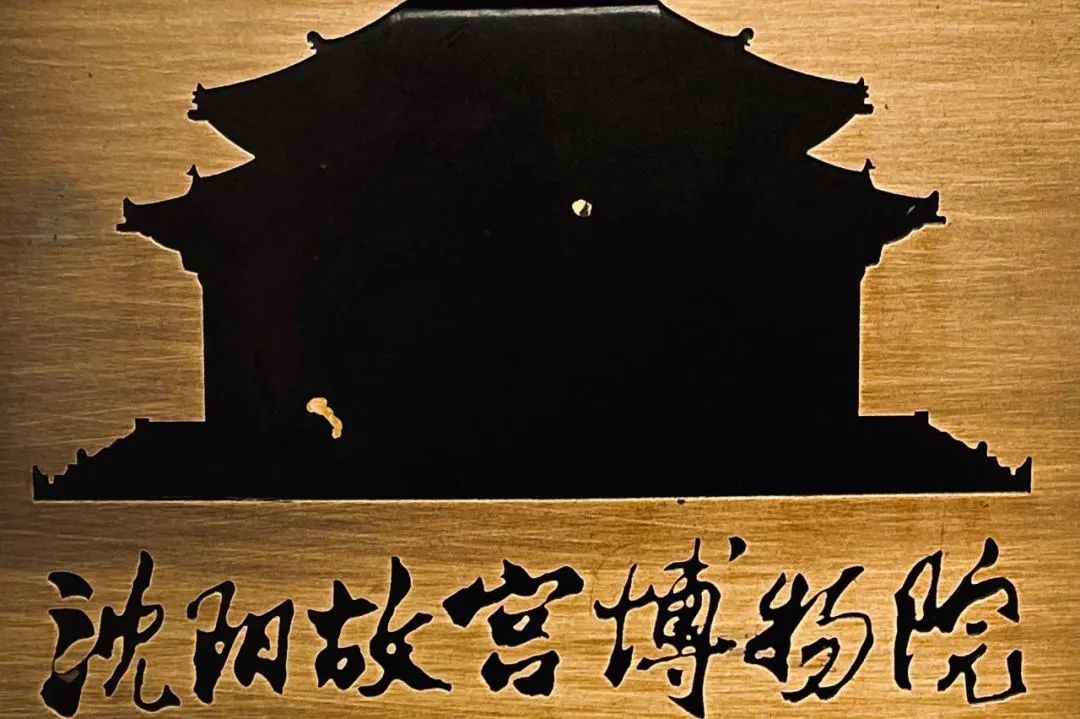 沈阳故宫博物院